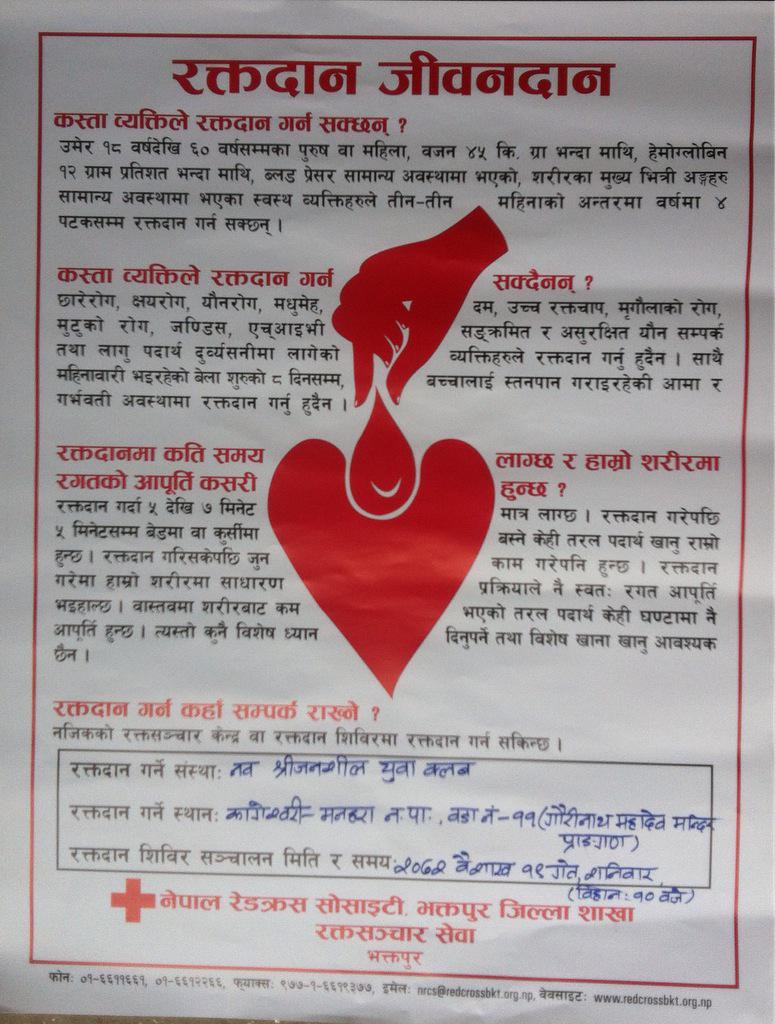 रक्तदान जीवनदान
कस्ता व्यक्तिले रक्तदान गर्न सक्छन् ?
उमेर १८ वर्षदेखि ६० वर्षसम्मका पुरुष वा महिला, वजन ४५ कि. ग्रा भन्दा माथि, हेमोग्लोबिन
१२ ग्राम प्रतिशत भन्दा माथि, ब्लड प्रेसर सामान्य अवस्थामा भएको, शरीरका मुख्य भित्री अङ्गहरु
सामान्य अवस्थामा भएका स्वस्थ व्यक्तिहरुले तीन-तीन महिनाको अन्तरमा वर्षमा ४
पटकसम्म रक्तदान गर्न सक्छन् ।
कस्ता व्यक्तिले रक्तदान गर्न सक्दैनन् ?
छारेरोग, क्षयरोग, यौनरोग, मधुमेह, दम, उच्च रक्तचाप, मृगौलाको रोग,
मुटुको रोग, जण्डिस, एच्आइभी सङ्क्रमित र असुरक्षित यौन सम्पर्क
तथा लागु पदार्थ दुर्व्यसनीमा लागेको व्यक्तिहरुले रक्तदान गर्नु हुदैन । साथै
महिनावारी भइरहेको बेला शुरुको ८ दिनसम्म, बच्चालाई स्तनपान गराइरहेकी आमा र
गर्भवती अवस्थामा रक्तदान गर्नु हुदैन ।
रक्तदानमा कति समय लाग्छ र हाम्रो शरीरमा
रगतको आपूर्ति कसरी हुन्छ ?
रक्तदान गर्दा ५ देखि ७ मिनेट मात्र लाग्छ । रक्तदान गरेपछि
५ मिनेटसम्म बेडमा वा कुर्सीमा बस्ने केही तरल पदार्थ खानु राम्रो
हुन्छ । रक्तदान गरिसकेपछि जुन काम गरेपनि हुन्छ । रक्तदान
गरेमा हाम्रो शरीरमा साधारण प्रक्रियाले नै स्वतः रगत आपूर्ति
भइहाल्छ । वास्तवमा शरीरबाट कम भएको तरल पदार्थ केही घण्टामा नै
आपूर्ति हुन्छ । त्यस्तो कुनै विशेष ध्यान दिनुपर्ने तथा विशेष खाना खानु आवश्यक
छैन ।
रक्तदान गर्न कहाँ सम्पर्क राख्ने ?
नजिकको रक्तसञ्चार केन्द्र वा रक्तदान शिविरमा रक्तदान गर्न सकिन्छ ।
रक्तदान गर्ने संस्था: नव श्रीजनशील युवा क्लब
रक्तदान गर्ने स्थान: कागेश्वरी- मनहरा न.पा., वडा नं-११ (गौरीनाथ महादेव मन्दिर
प्राङ्गण)
रक्तदान शिविर सञ्चालन मिति र समय: २०७२ वैशाख १९ गते, शनिवार,
(विहान: १० वजे)
नेपाल रेडक्रस सोसाइटी, भक्तपुर जिल्ला शाखा
रक्तसञ्चार सेवा
भक्तपुर
फोन: ०१-६६११६६१, ०१-६६१२२६६, फ्याक्स: ९७७-१-६६१९३७७, इमेल: nrcs@redcrossbkt.org.np, वेवसाइट: www.redcrossbkt.org.np